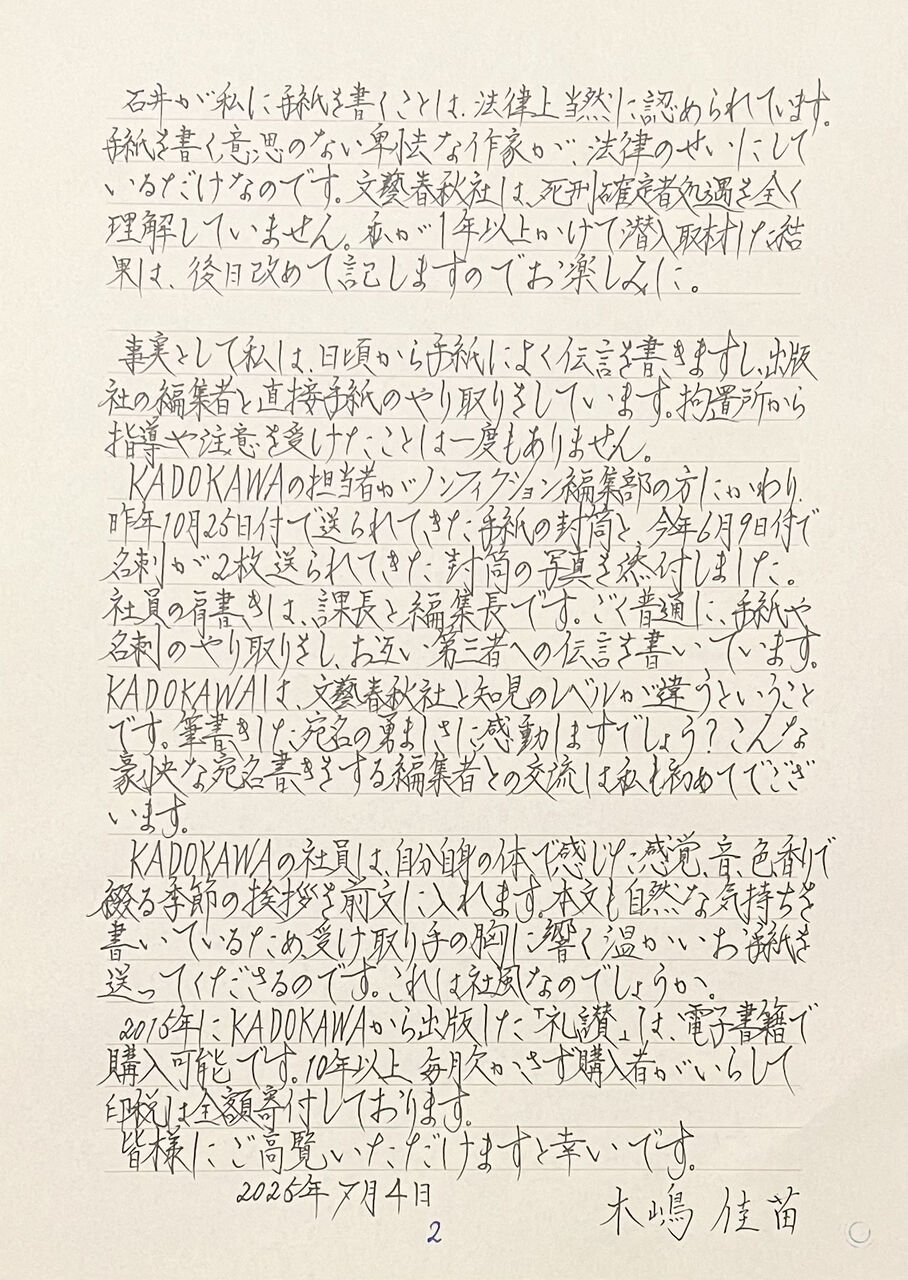 石井が私に手紙を書くことは、法律上当然に認められています。
手紙を書く意思のない卑怯な作家が、法律のせいにして
いるだけなのです。文藝春秋社は、死刑確定者処遇を全く
理解していません。私が1年以上かけて潜入取材した結
果は、後日改めて記しますのでお楽しみに。
事実として私は、日頃から手紙によく伝言を書きますし、出版
社の編集者と直接手紙のやり取りをしています。拘置所から
指導や注意を受けたことは一度もありません。
KADOKAWAの担当者がノンフィクション編集部の方にかわり、
昨年10月25日付で送られてきた手紙の封筒と、今年6月9日付で
名刺が2枚送られてきた封筒の写真を添付しました。
社員の肩書きは、課長と編集長です。ごく普通に、手紙や
名刺のやり取りをし、お互い第三者への伝言を書いています。
KADOKAWAは、文藝春秋社と知見のレベルが違うということ
です。筆書きした宛名の勇ましさに感動しますでしょう？こんな
豪快な宛名書きをする編集者との交流は私も初めてでござ
います。
KADOKAWAの社員は、自分自身の体で感じた感覚、音、色香りで
綴る季節の挨拶を前文に入れます。本文も自然な気持ちを
書いているため、受け取り手の胸に響く温かいお手紙を
送ってくださるのです。これは社風なのでしょうか。
2015年にKADOKAWAから出版した「礼讃」は、電子書籍で
購入可能です。10年以上、毎月欠かさず購入者がいらして
印税は全額寄付しております。
皆様にご高覧いただけますと幸いです。
2025年7月4日
木嶋 佳苗
2